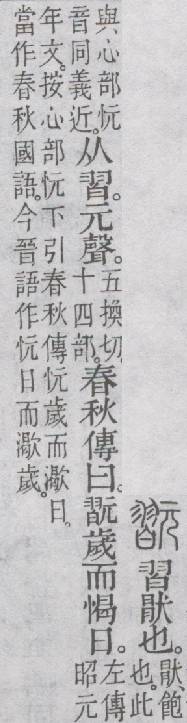 翫 習猒也。猒飽也。此
與心部忨音同義近。从習。元聲。五換切十四部。春秋傳曰。翫歲而愒日。左傳昭元
年文。按心部忨下引春秋傳忨歲而㵣日。
當作春秋國語。今晉語作忨日而㵣歲。